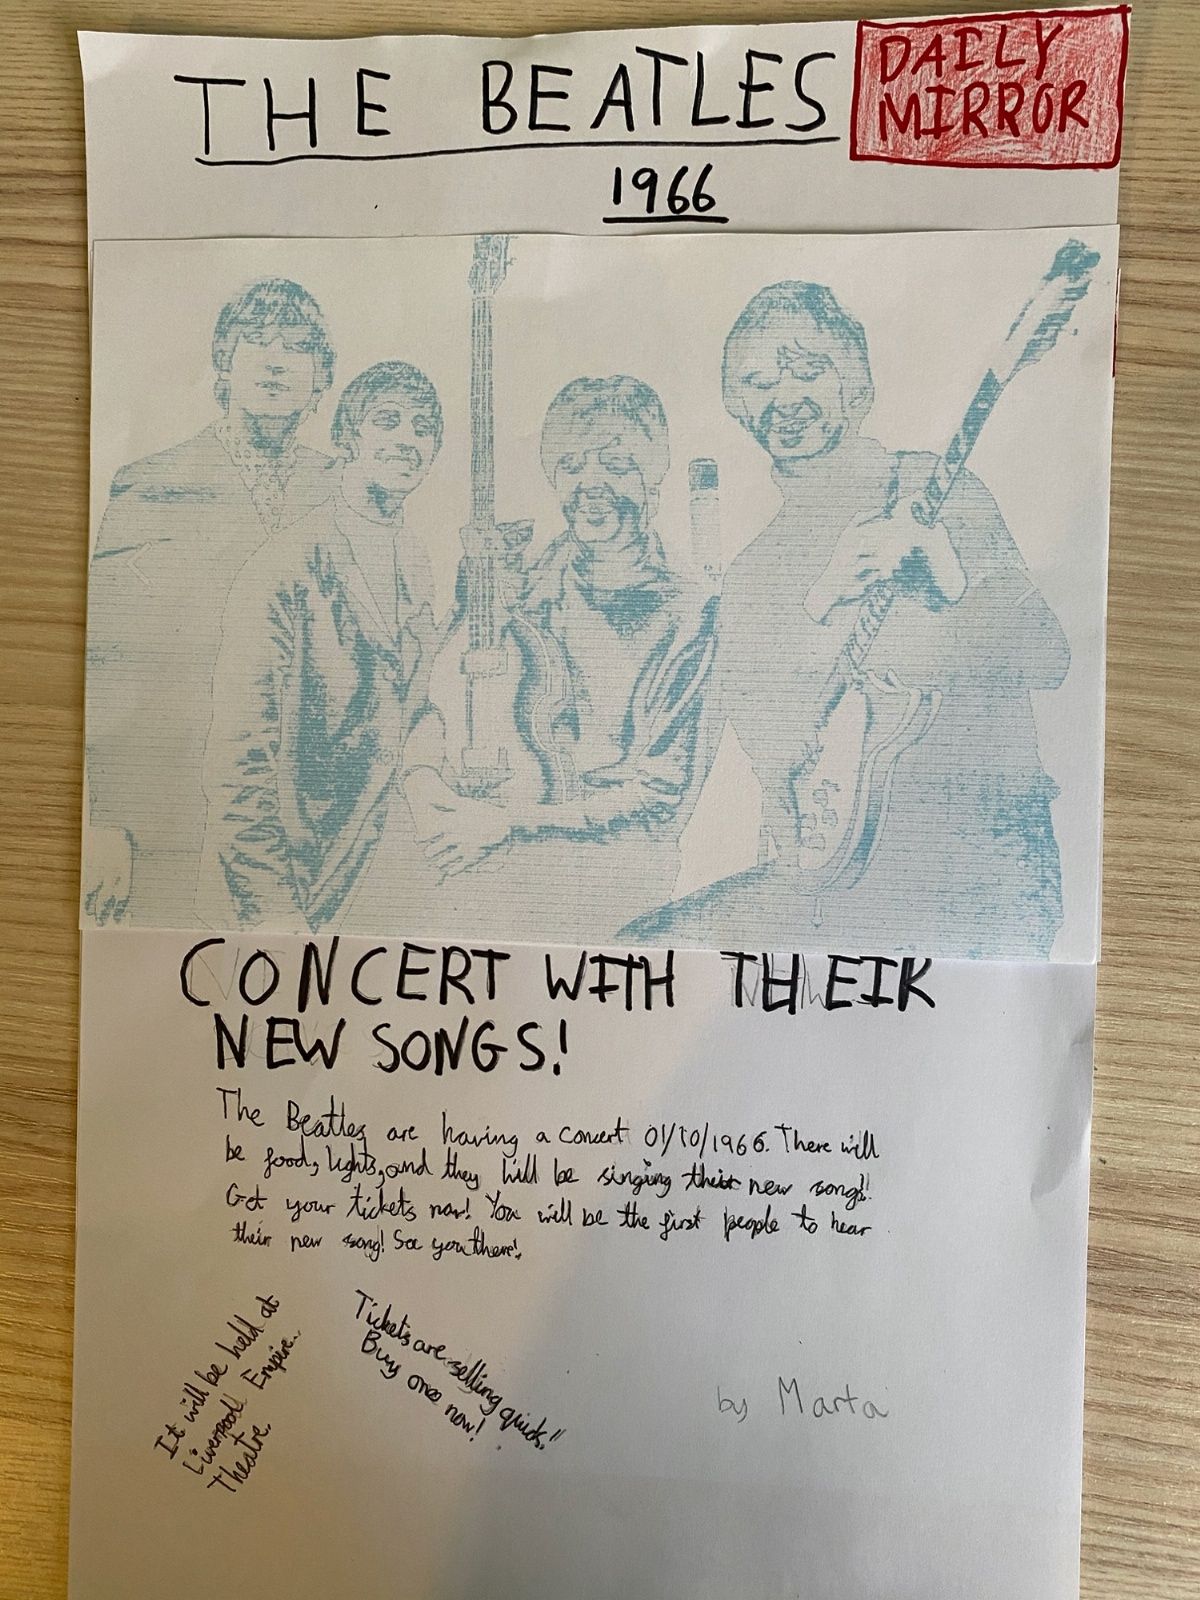 THE BEATLES
DAILY
MIRROR
1966
CONCERT WITH THEIR
NEW SONGS!
The Beatles are having a concert 01/10/1966. There will
be food, lights, and they will be singing their new songs!!
Get your tickets now! You will be the first people to hear
their new song! See you there!
It will be held at
Liverpool Empire
Theatre.
Tickets are selling quick!!
Buy one now!
by Marta